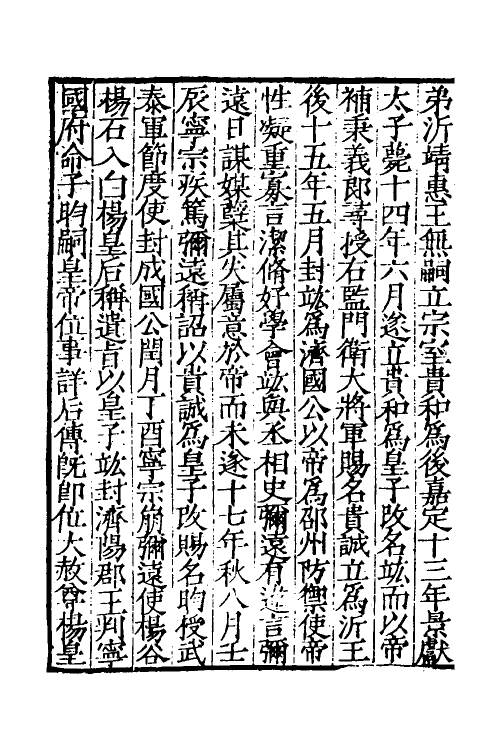 弟沂靖惠王無嗣立宗室貴和為後嘉定十三年景獻
太子薨十四年六月遂立貴和為皇子改名竑而以帝
補秉義郎尋授右監門衛大將軍賜名貴誠立為沂王
後十五年五月封竑為濟國公以帝為邵州防禦使帝
性凝重寡言潔脩好學會竑與丞相史彌遠有違言彌
遠日謀媒櫱其失屬意於帝而未遂十七年秋八月壬
辰寧宗疾篤彌遠稱詔以貴誠為皇子改賜名昀授武
泰軍節度使封成國公閏月丁酉寧宗崩彌遠使楊谷
楊石入白楊皇后稱遺旨以皇子竑封濟陽郡王判寧
國府命子昀嗣皇帝位事詳后傳旣卽位大赦尊楊皇